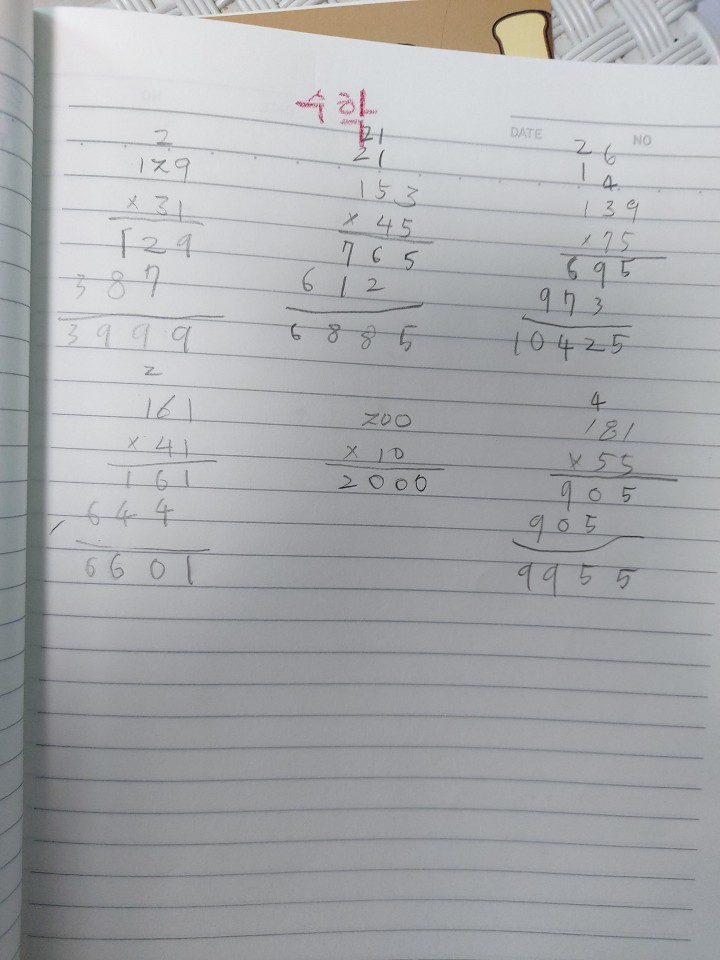 수학
DATE NO
2
129
× 31
129
387
3999
21
21
153
× 45
765
612
6885
26
14
139
× 75
695
973
10425
2
161
× 41
161
644
6601
200
× 10
2000
4
181
× 55
905
905
9955